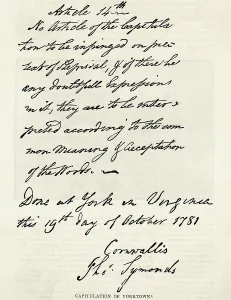 Article 14th
No Article of the Capitula
tion to be infringed on pre
text of Reprisal, & if there be
any doubtfull Expressions
in it, they are to be inter
preted according to the com
mon Meaning & Acceptation
of the Words. —
Done at York in Virginia
this 19th day of October 1781
Cornwallis
Tho: Symonds
CAPITULATION OF YORKTOWN